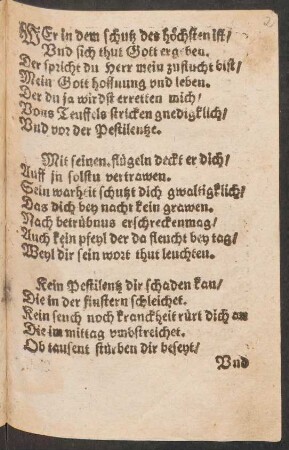 WEr in dem schutz des höchsten ist/
Vnd sich thut Gott ergeben.
Der spricht du Herr mein zuflucht bist/
Mein Gott hoffnung vnd leben.
Der du ja wirdst erretten mich/
Vons Teuffels stricken gnedigklich/
Vnd vor der Pestilentze.
Mit seinen flügeln deckt er dich/
Auff jn soltu vertrawen.
Sein warheit schutzt dich gwaltigklich/
Das dich bey nacht kein grawen.
Nach betrübnus erschrecken mag/
Auch kein pfeyl der da fleucht bey tag/
Weyl dir sein wort thut leuchten.
Kein Pestilentz dir schaden kan/
Die in der finstern schleichet.
Kein seuch noch kranckheit rürt dich an
Die im mittag vmbstreichet.
Ob tausent stürben dir beseyt/
Vnd